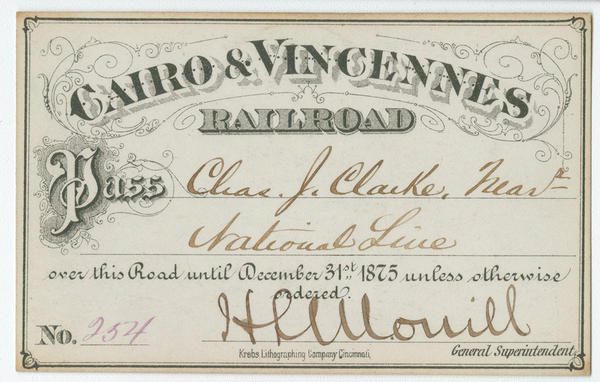 CAIRO & VINCENNES
RAILROAD
Pass Chas. J. Clarke,
National Line
over this Road until December 31st 1875 unless otherwise
ordered.
No. 254
General Superintendent.
Krebs Lithographing Company Cincinnati,